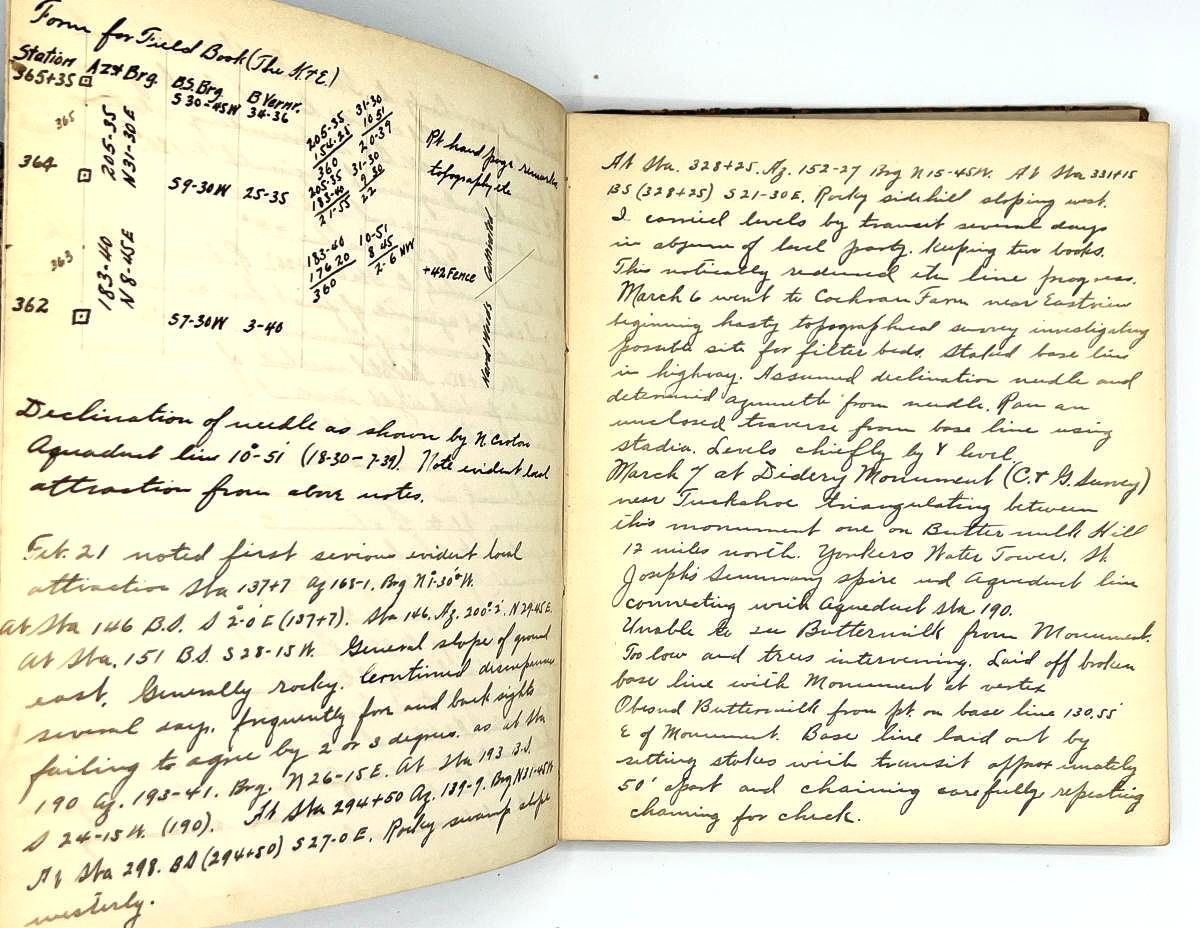 Form for Field Book (The K&E.)
Station Az & Brg. B.S. Brg. B Vernr.
365+35 S30-45W 34-36
365
205-35
N31-30E
364
S9-30W 25-35
363
183-40
N8-45E
362
S7-30W 3-40
205-35 31-30
154-25 10 51
360 20-39
205-35 31-30
183-40 9 30
21-55 22
183-40 10-51
176 20 8 45
360 2-6 NW
Rt hand page remarks
topography etc
+42 Fence
Cultivated
Hard Woods
Declination of needle as shown by N. Croton
Aquaduct line 10°-51' (18-30 - 7-39). Note evident local
attraction from above notes.
Feb. 21 noted first serious evident local
attraction Sta 137+7 Az 168-1. Brg N1°-30'W.
At Sta 146 B.S. S 2°-0' E (137+7). Sta 146. Az. 200°-2'. N29-45E.
At Sta. 151 B.S. S28-15W. General slope of ground
east. Generally rocky. Continued discrepancies
several days. frequently fore and back sights
failing to agree by 2 or 3 degrees. as at Sta
190 Az. 193-41. Brg. N26-15E. At Sta 193 B.S.
S 24-15W. (190). At Sta 294+50 Az. 139-9. Brg N31-45W
At Sta 298. BS (294+50) S27-0E. Rocky swamp slope
westerly.
At Sta. 328+25. Az. 152-27 Brg N15-45W. At Sta 331+15
BS (328+25) S21-30E. Rocky sidehill sloping west.
I carried levels by transit several days
in absence of level party. keeping two books.
This noticably reduced the line progress.
March 6 went to Cochran Farm near Eastview
beginning hasty topographical survey investigating
possible site for filter beds. Staked base line
in highway. Assumed declination needle and
determined azumeth from needle. Ran an
unclosed traverse from base line using
stadia. Levels chiefly by Y level.
March 7 at Didery Monument (C. & G. Survey)
near Tuckahoe triangulating between
this monument one on Butter milk Hill
12 miles north. Yonkers Water Tower. St.
Joseph's Seminary spire and Aqueduct line
connecting with Aqueduct sta 190.
Unable to see Buttermilk from Monument.
Too low and trees intervening. Laid off broken
base line with Monument at vertex
Obsevd Buttermilk from pt. on base line 130.55'
E of Monument. Base line laid out by
setting stakes with transit approximately
50' apart and chaining carefully repeating
chaining for check.